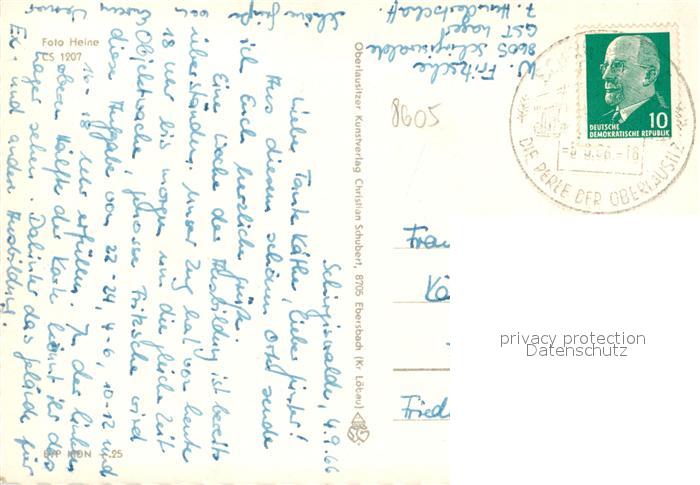 Schirgiswalde, 4.9.66
Liebe Tante Käthe, liebe
Aus diesem schönen Ort sende
ich Euch herzliche Grüße.
Eine Woche der Ausbildung ist bereits
überstanden. Unser Zug hat von heute
18 Uhr bis morgen um die gleiche Zeit
Objektwache, Genosse Fritzsche wird
diese Aufgabe von 22-24, 4-6, 10-12 und
16-18 Uhr erfüllen. In der linken
oberen Hälfte der Karte könnt ihr das
Lager sehen. Dahinter das Gelände für
Ex- und andere Ausbildung.
Schöne Grüße
von
Eurem
Werner
W. Fritzsche
8605 Schirgiswalde
GST Lager
7. Hundertschaft
Foto Heine
CS 1207
Oberlausitzer Kunstverlag Christian Schubert, 8705 Ebersbach (Kr. Löbau)
8605
10
DEUTSCHE
DEMOKRATISCHE REPUBLIK
DIE PERLE DER OBERLAUSITZ
Frau
Fried
privacy protection
Datenschutz